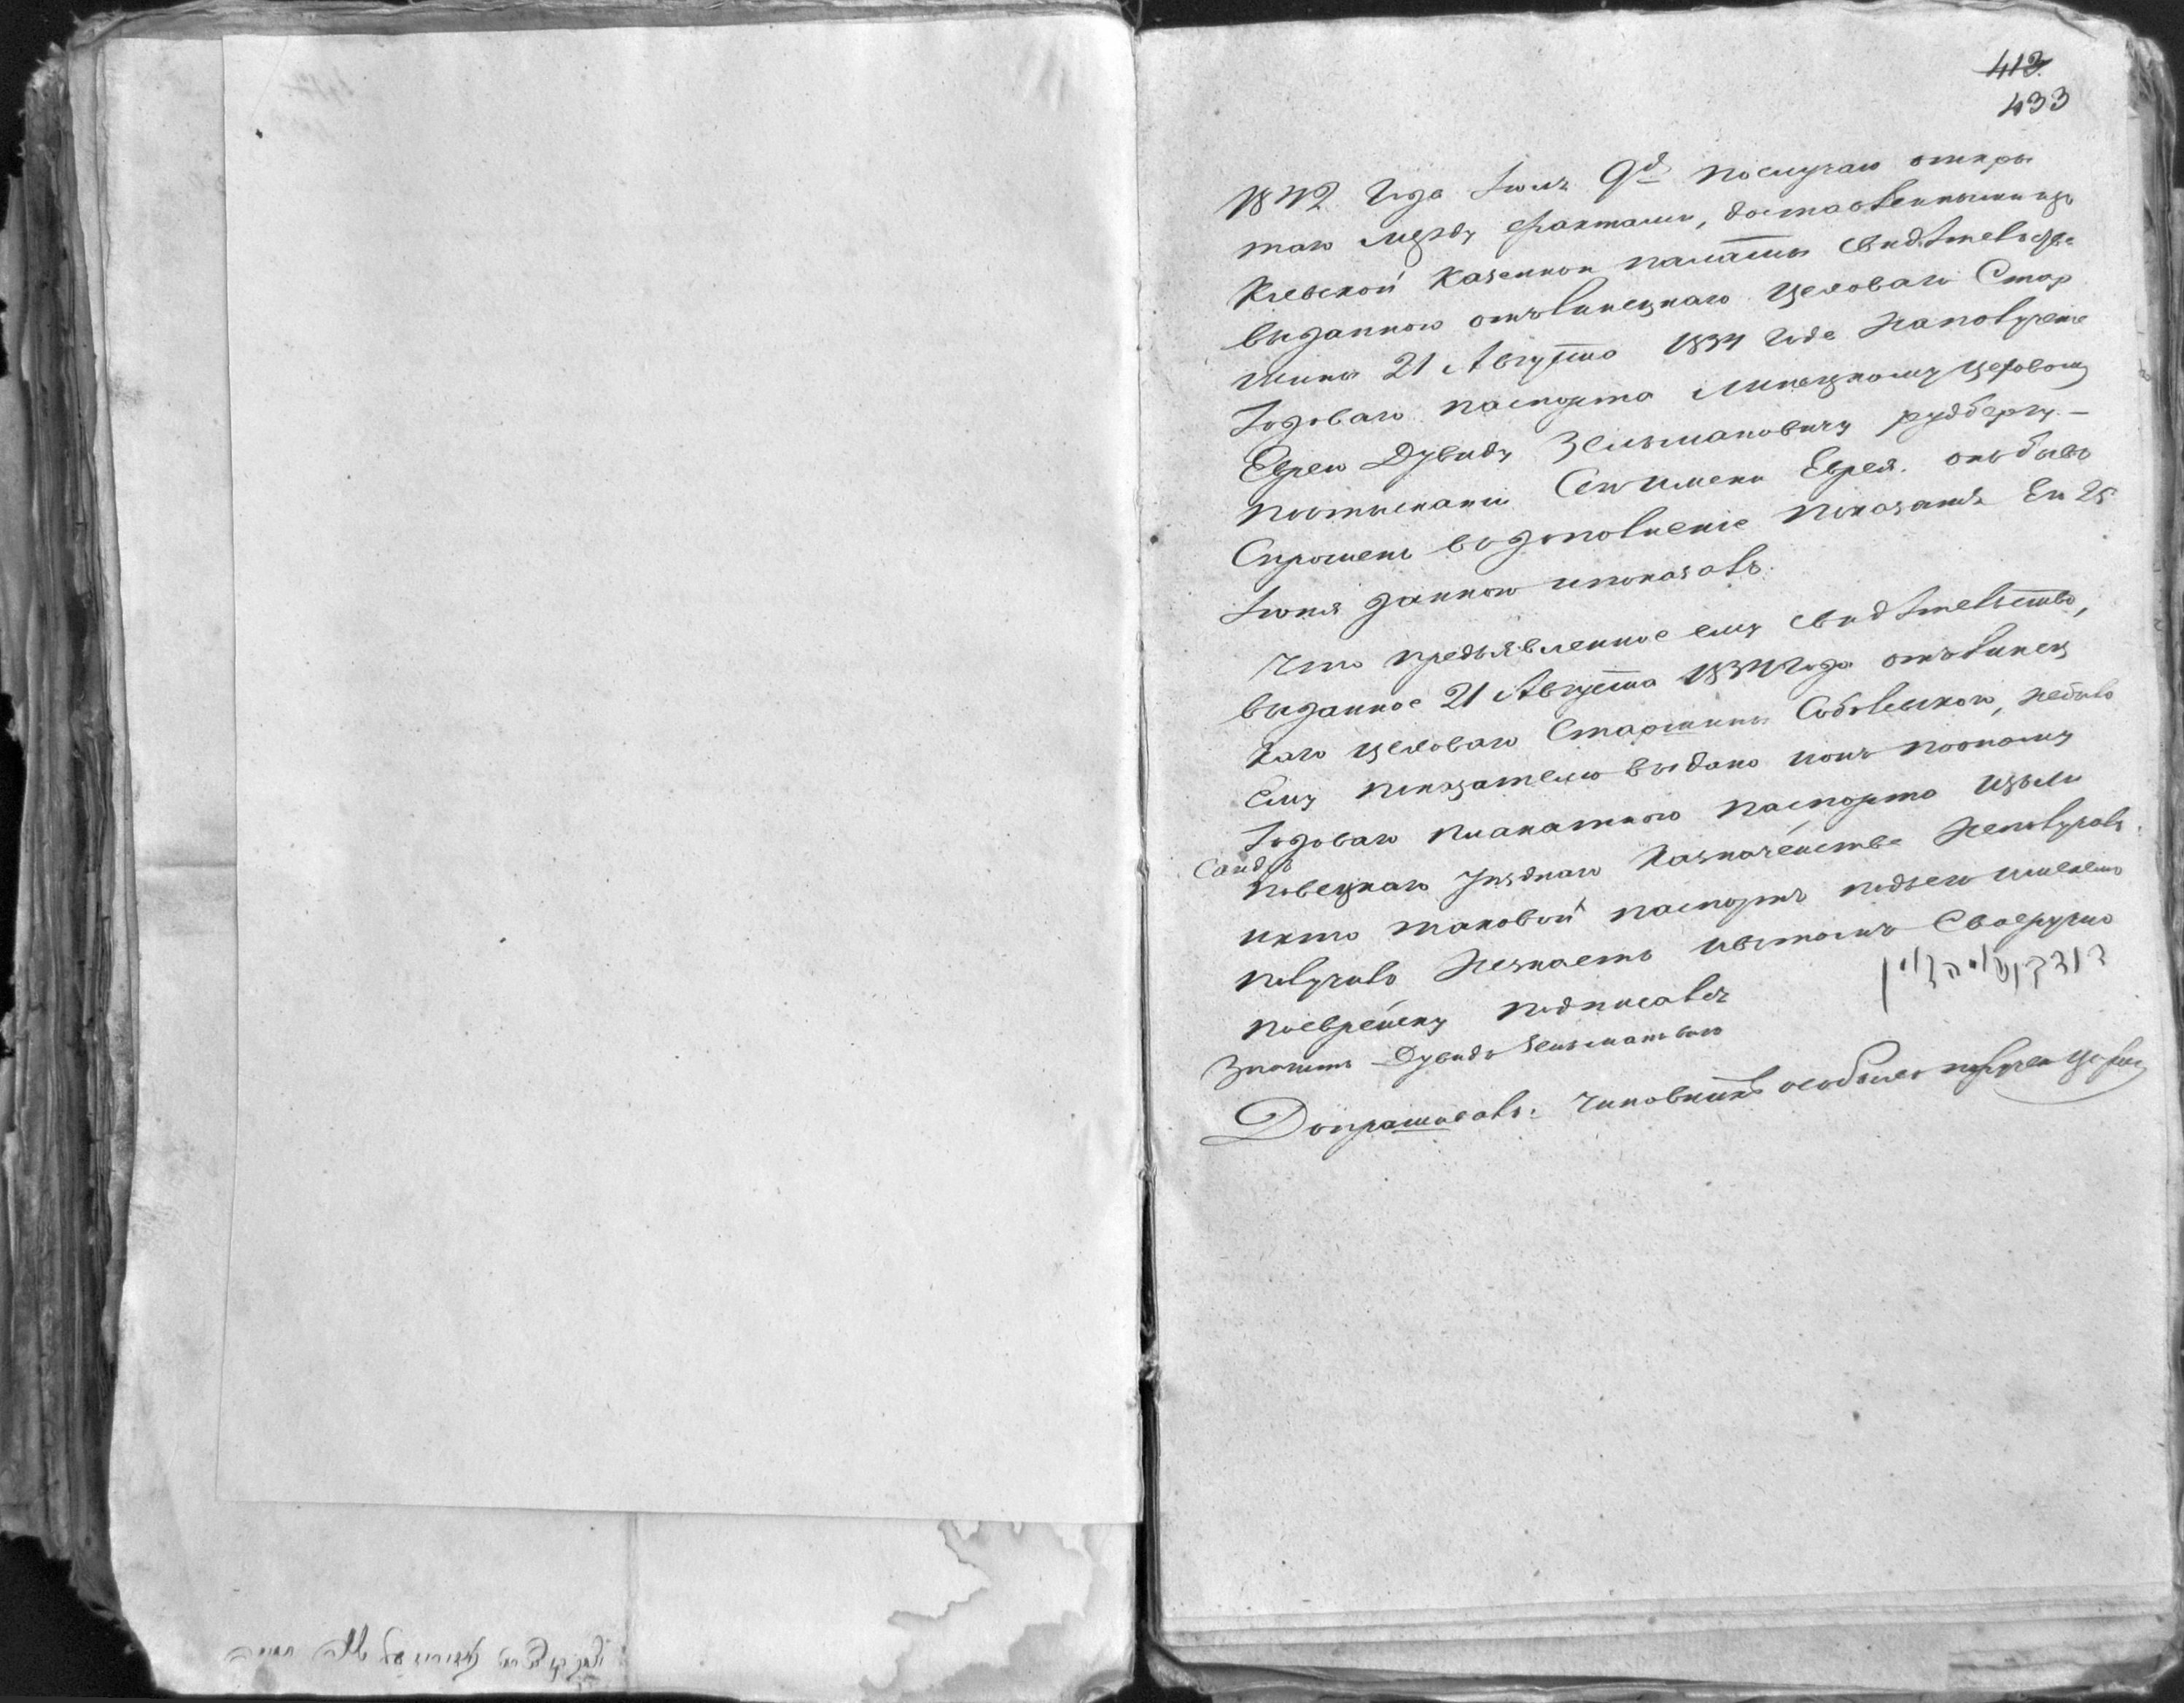 413
433
1842 года Июля 9д по случаю откры
таго между фактами, доставленными изъ
Кіевской Казенной палаты свидѣтельства
выданного отъ Липецкаго Цеховаго Стар
шины 21 Августа 1834 года на получение
Годоваго паспорта Липецкому Цеховому
Еврею Дувиду Зельмановичу Рудбергу –
по отысканіи сего имени Еврея. онъ былъ
Спрошенъ въ дополнение показанія Ею 25
Іюня данного и показалъ:
Что предъявленное ему свидѣтельство,
выданное 21 Августа 1834 года отъ Липец
каго Цеховаго Старшины Соболевского, не было
Ему показателю выдано и онъ по оному
Годоваго плакатного паспорта изъ Ли
повецкаго Уѣзднаго Казначейства не получалъ.
и кто таковой паспортъ подъ его именемъ
получилъ не знаетъ и въ томъ Своеручно
по еврейску подписался
Значитъ Дувидъ Зельмановъ
Допрашивалъ: Чиновникъ особыхъ порученій